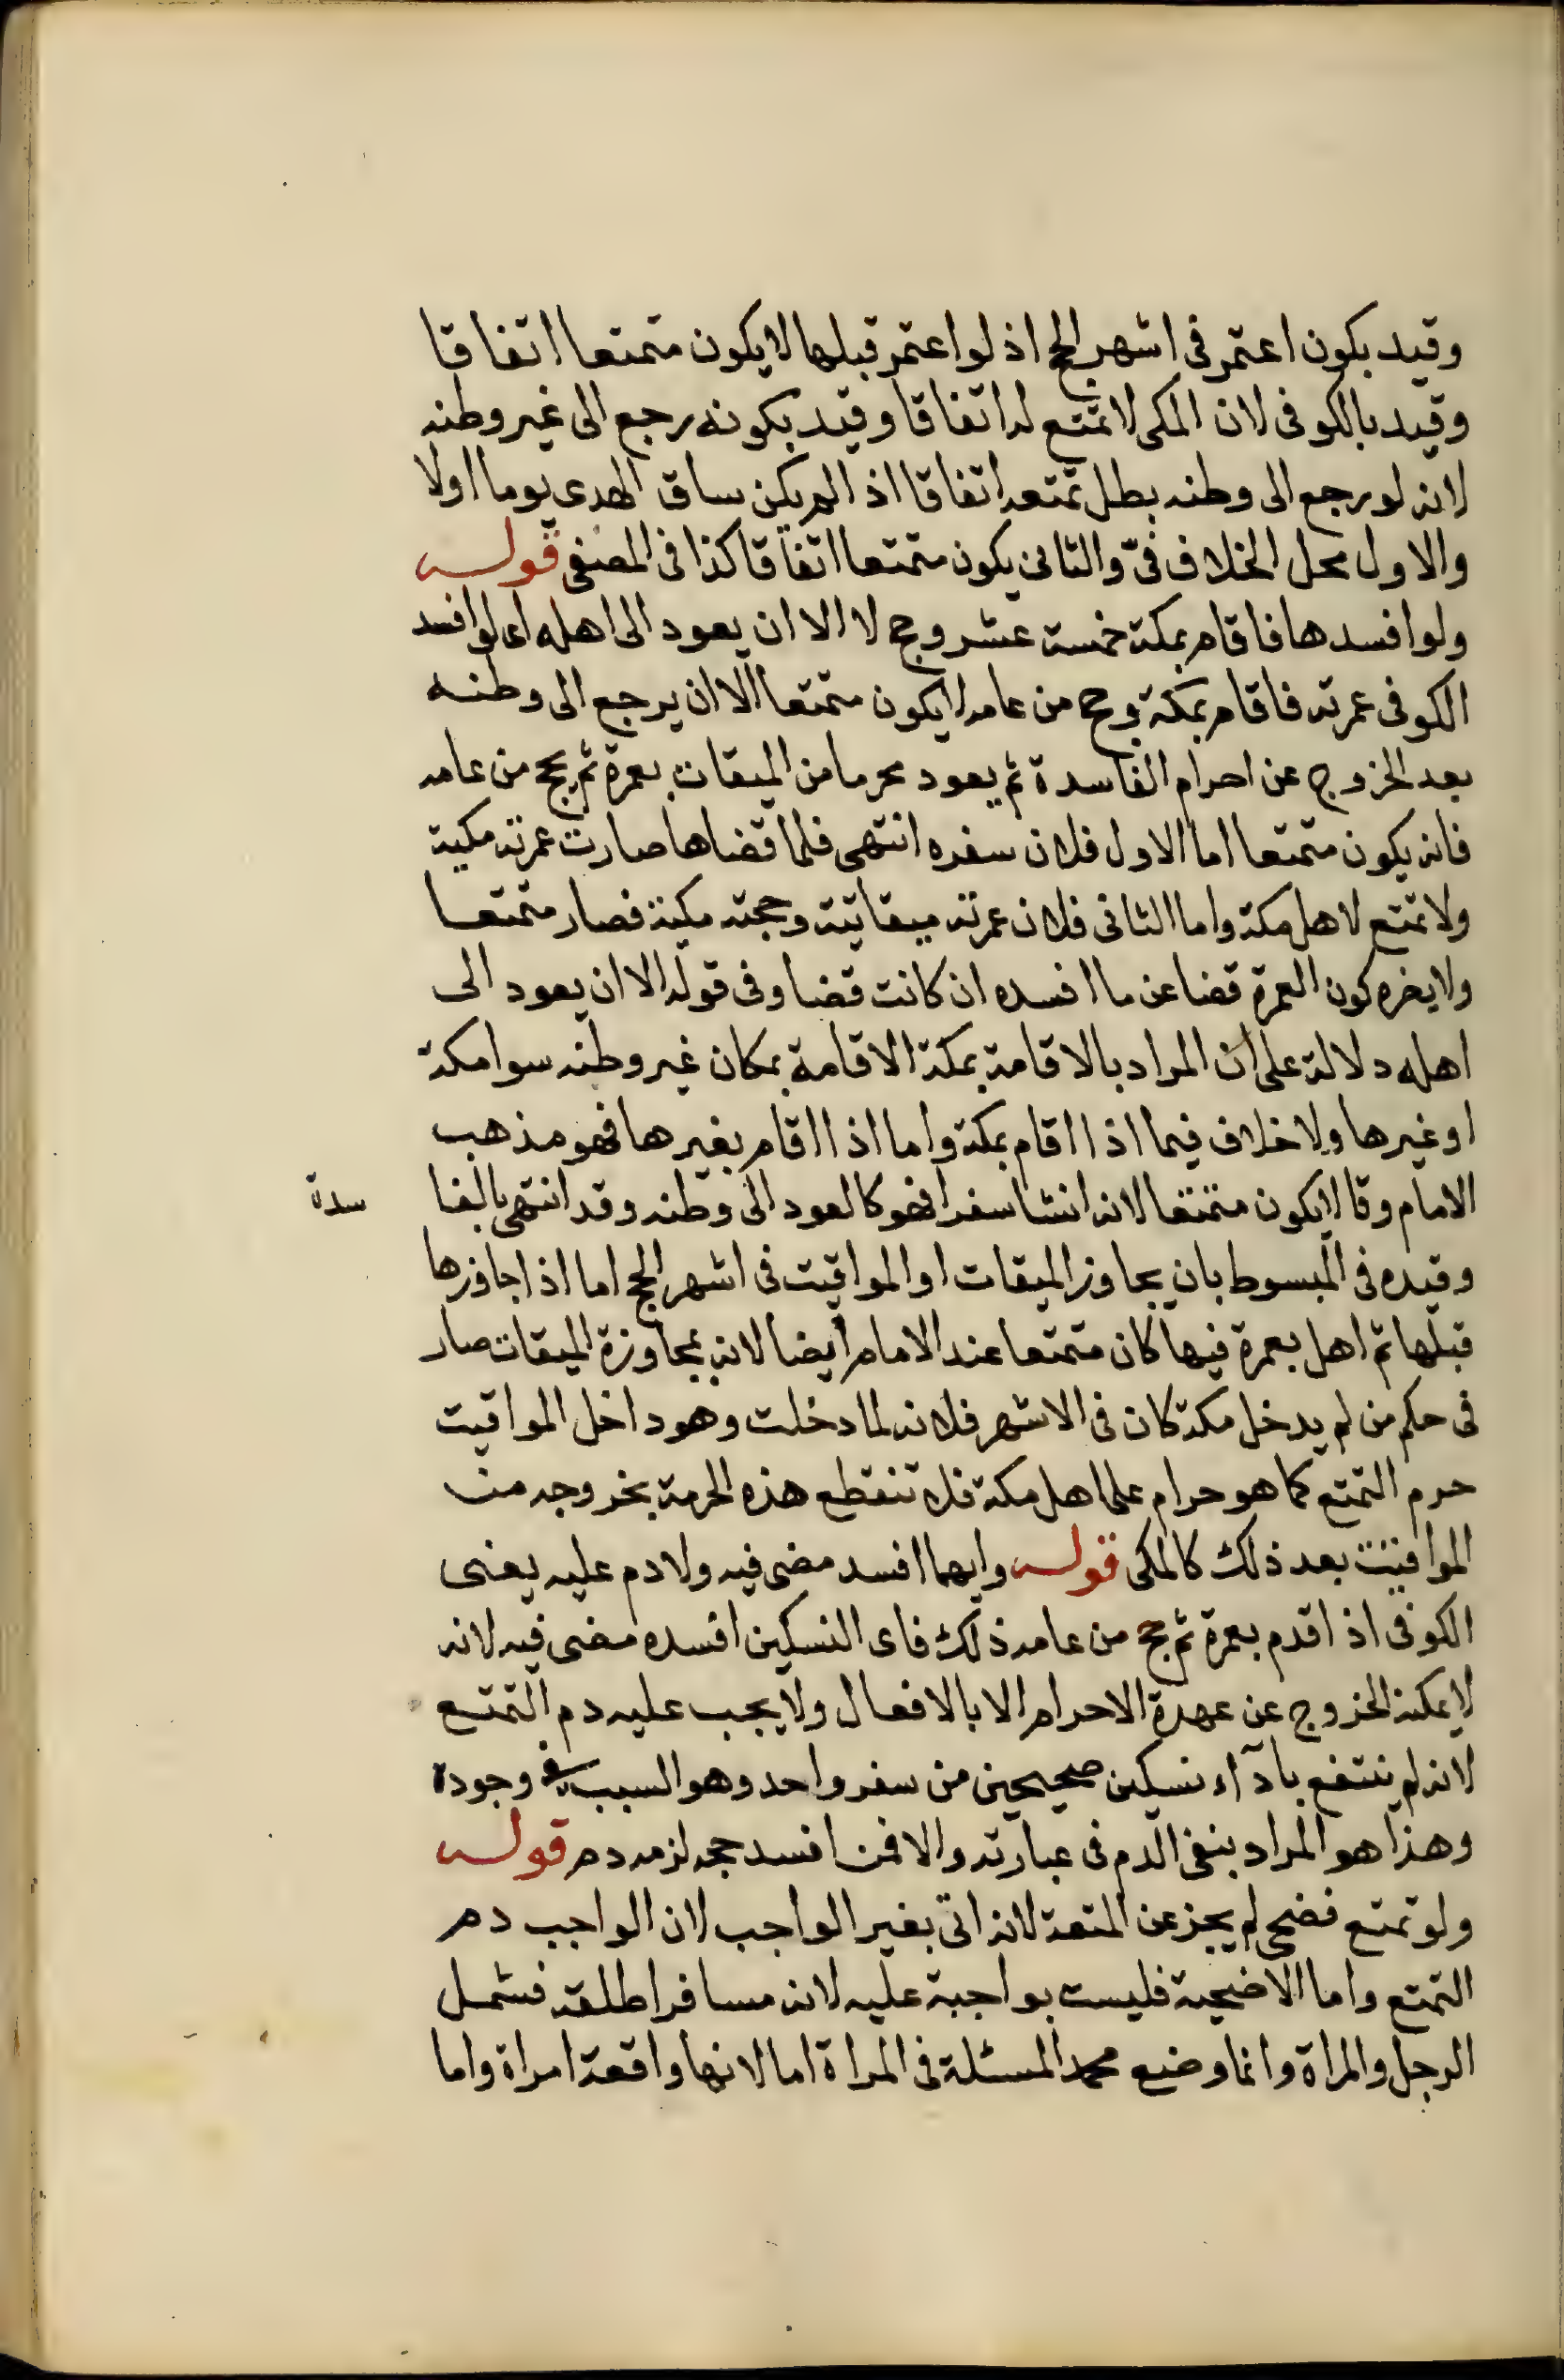 وقيد بكون اعتمر فى اشهر الحج اذ لو اعتمر قبلها لا يكون متمتعا اتفاقا
وقيد بالكوفى لان المكى لا تمتع له اتفاقا وقيد بكونه رجع الى غير وطنه
لانه لو رجع الى وطنه بطل تمتعه اتفاقا اذا لم يكن ساق الهدى يوما اولا
والاول محل الخلاف فى والثانى يكون متمتعا اتفاقا كذا فى المصفى قوله
ولو افسدها فاقام بمكة خمسة عشر وحج لا الا ان يعود الى اهله اى لو افسد
الكوفى عمرته فاقام بمكة وحج من عامه لا يكون متمتعا الا ان يرجع الى وطنه
بعد الخروج عن احرام الفاسدة ثم يعود محرما من الميقات بعمرة ثم يحج من عامه
فانه يكون متمتعا اما الاول فلان سفره انتهى فلما قضاها صارت عمرته مكية
ولا تمتع لاهل مكة واما الثانى فلان عمرته ميقاتية وحجته مكية فصار متمتعا
ولا يضره كون العمرة قضا عن ما افسده ان كانت قضا وفى قوله الا ان يعود الى
اهله دلالة على ان المراد بالاقامة بمكة الاقامة بمكان غير وطنه سوا مكة
او غيرها ولا خلاف فيما اذا اقام بمكة واما اذا اقام بغيرها فهو مذهب
الامام وقالا يكون متمتعا لانه انشا سفرا فهو كالعود الى وطنه وقد انتهى بالفا سدة
وقيده فى المبسوط بان يجاوز الميقات او المواقيت فى اشهر الحج اما اذا جاوزها
قبلها ثم اهل بعمرة فيها كان متمتعا عند الامام ايضا لانه بمجاوزة الميقات صار
فى حكم من لم يدخل مكة كان فى الاشهر فلانه لما دخلت وهو داخل المواقيت
حرم التمتع كما هو حرام على اهل مكة فلا تنقطع هذه الحرمة بخروجه من
المواقيت بعد ذلك كالمكى قوله وايهما افسد مضى فيه ولا دم عليه يعنى
الكوفى اذا قدم بعمرة ثم حج من عامه ذلك فاى النسكين افسده مضى فيه لانه
لا يمكنه الخروج عن عهدة الاحرام الا بالافعال ولا يجب عليه دم التمتع
لانه لم ينتفع بادآء نسكين صحيحين من سفر واحد وهو السبب فى وجوده
وهذا هو المراد بنفى الدم فى عبارته والا فمن افسد حجه لزمه دم قوله
ولو تمتع فضحى لم يجز عن المتعة لانه اتى بغير الواجب لان الواجب دم
التمتع واما الاضحية فليست بواجبة عليه لانه مسافر اطلقه فشمل
الرجل والمراة وانما وضع محمد المسئلة فى المراة اما لانها واقعة امراة واما